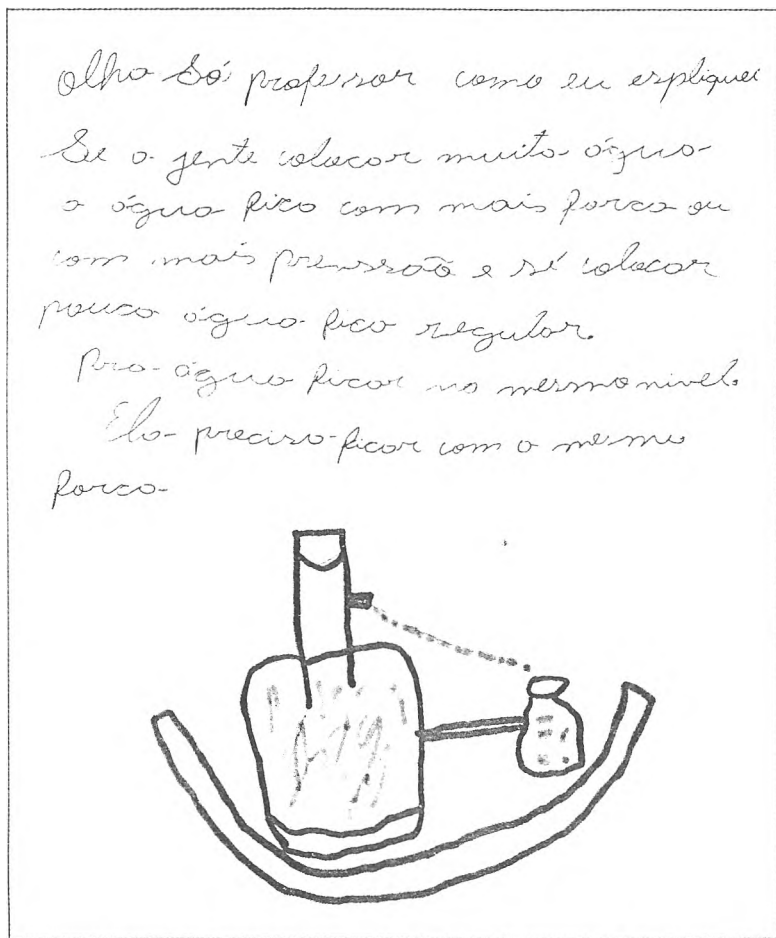 olha Só professor como eu espliquei
Se a gente colocar muita água
a água fica com mais força ou
com mais pressão e sé colocar
pouca água fica regular.
Pra água ficar no mesmo nivel.
Ela precisa ficar com a mesma
força